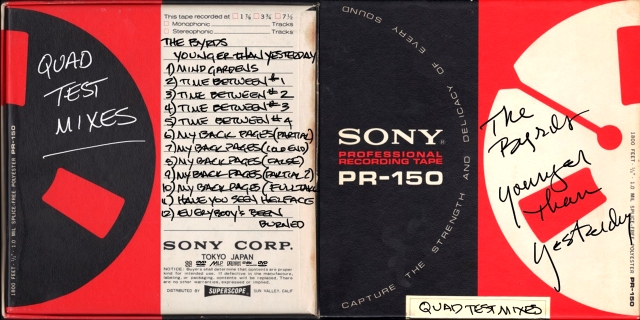 QUAD
TEST
MIXES
1800 FEET · ¼" · 1.0 MIL SPLICE-FREE POLYESTER PR-150
This tape recorded at □ 1⅞ □ 3¾ □ 7½
□ Monophonic Tracks
□ Stereophonic Tracks
THE BYRDS
YOUNGER THAN YESTERDAY
1) MIND GARDENS
2) TIME BETWEEN #1
3) TIME BETWEEN #2
4) TIME BETWEEN #3
5) TIME BETWEEN #4
6) MY BACK PAGES (PARTIAL)
7) MY BACK PAGES (OLD END)
8) MY BACK PAGES (FALSE)
9) MY BACK PAGES (PARTIAL 2)
10) MY BACK PAGES (FULL TAKE)
11) HAVE YOU SEEN HER FACE
12) EVERYBODY'S BEEN
BURNED
SONY CORP.
TOKYO JAPAN
NOTICE: Buyers shall determine that contents are proper
for intended use. If defective in the manufacture,
labeling, or packaging, contents will be replaced. There
are no other warranties, expressed or implied.
DISTRIBUTED BY SUPERSCOPE SUN VALLEY, CALIF
SONY®
PROFESSIONAL
RECORDING TAPE
PR-150
CAPTURE THE STRENGTH AND DELICACY OF EVERY SOUND
The
Byrds
Younger
than
Yesterday
1800 FEET · ¼" · 1.0 MIL SPLICE-FREE POLYESTER PR-150
QUAD TEST MIXES